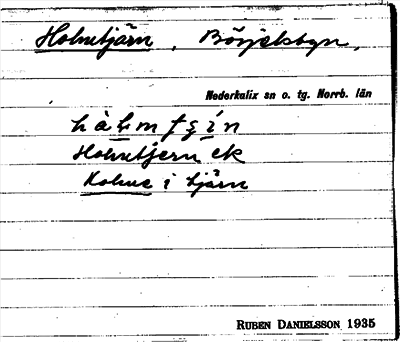 Holmtjärn, Börjelsbyn,
Nederkalix sn o. tg. Norrb. län
Holmtjern ek
Holme i tjärn
RUBEN DANIELSSON 1935